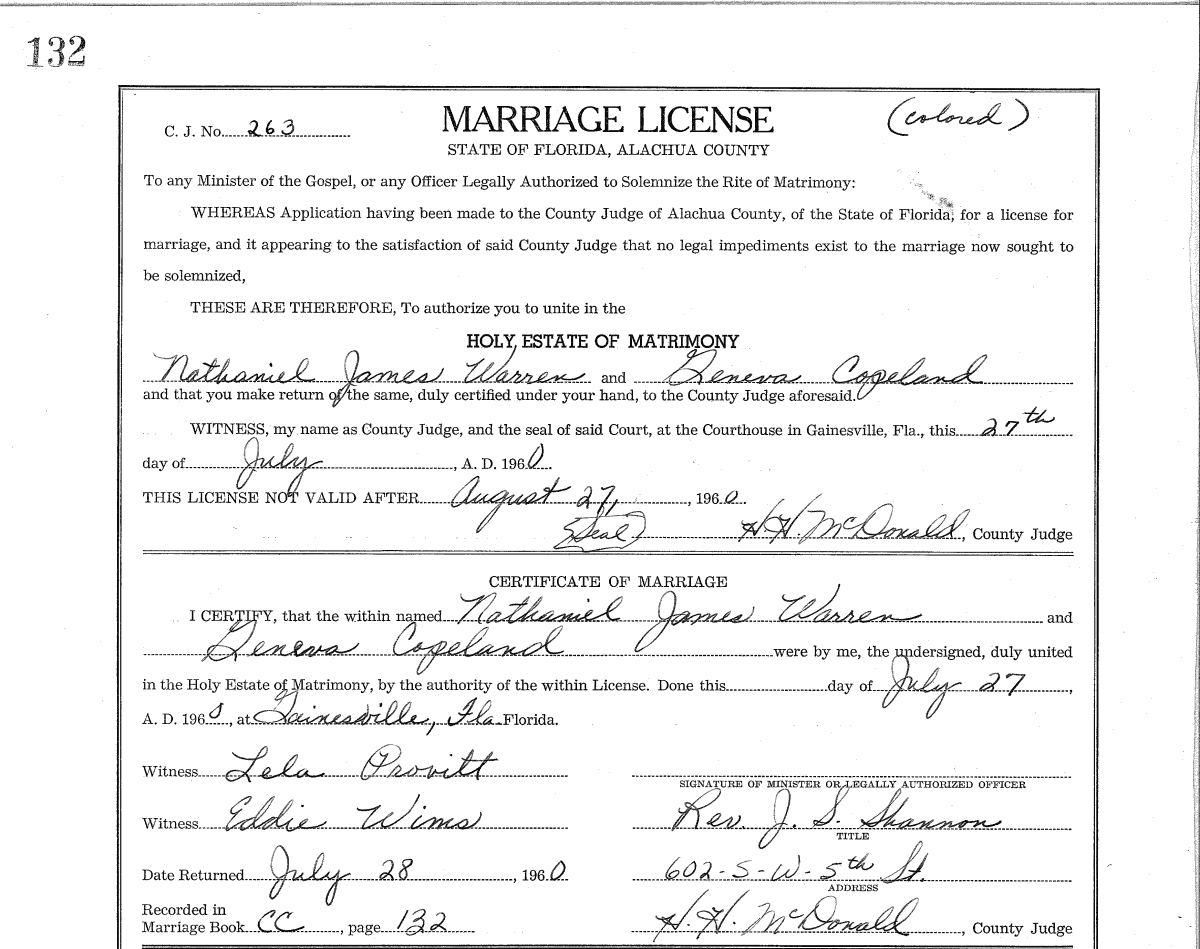 132
C. J. No. 263
MARRIAGE LICENSE
(colored)
STATE OF FLORIDA, ALACHUA COUNTY
To any Minister of the Gospel, or any Officer Legally Authorized to Solemnize the Rite of Matrimony:
WHEREAS Application having been made to the County Judge of Alachua County, of the State of Florida, for a license for
marriage, and it appearing to the satisfaction of said County Judge that no legal impediments exist to the marriage now sought to
be solemnized,
THESE ARE THEREFORE, To authorize you to unite in the
HOLY ESTATE OF MATRIMONY
Nathaniel James Warren and Geneva Copeland
and that you make return of the same, duly certified under your hand, to the County Judge aforesaid.
WITNESS, my name as County Judge, and the seal of said Court, at the Courthouse in Gainesville, Fla., this 27th
day of July, A. D. 1960.
THIS LICENSE NOT VALID AFTER August 27, , 1960.
(Seal) H. H. McDonald, County Judge
CERTIFICATE OF MARRIAGE
I CERTIFY, that the within named Nathaniel James Warren and
Geneva Copeland were by me, the undersigned, duly united
in the Holy Estate of Matrimony, by the authority of the within License. Done this day of July 27,
A. D. 1960, at Gainesville, Fla. Florida.
Witness Lela Provitt
SIGNATURE OF MINISTER OR LEGALLY AUTHORIZED OFFICER
Witness Eddie Wims Rev J. S. Shannon
TITLE
Date Returned July 28, 1960 602-S-W-5th St.
ADDRESS
Recorded in
Marriage Book CC, page 132 H. H. McDonald, County Judge